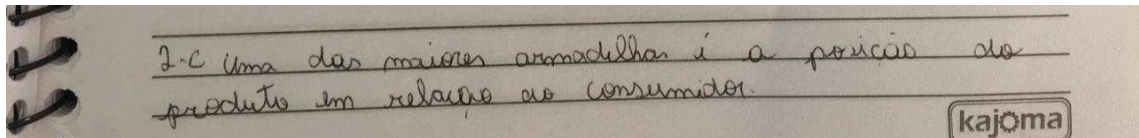 2-C Uma das maiores armadilhas é a posição do
produto em relação ao consumidor.
kajoma